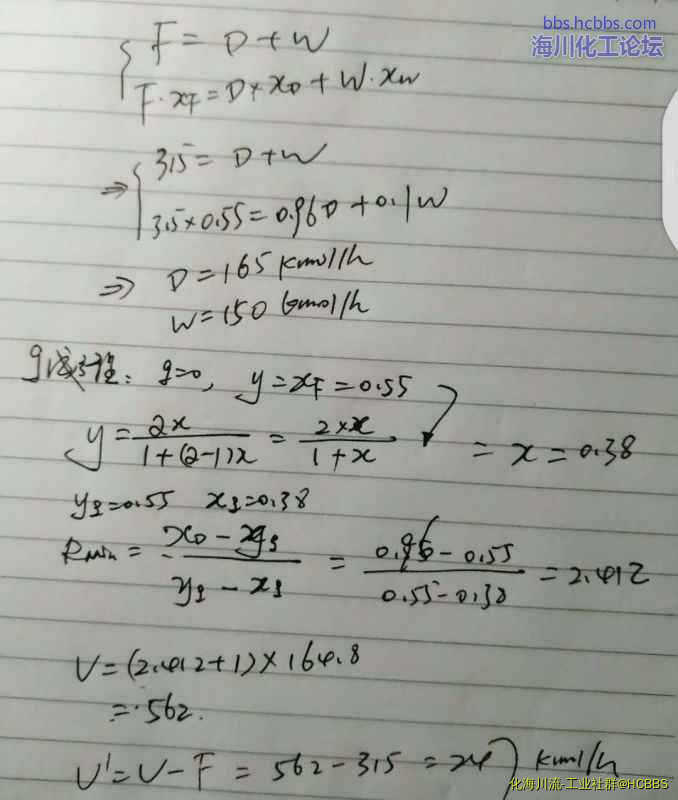 bbs.hcbbs.com
海川化工论坛
F = D + W
F·xF = D×xD + W·xW
⇒ 315 = D + W
315×0.55 = 0.96D + 0.1W
⇒ D = 165 kmol/h
W = 150 kmol/h
q线方程: q=0, y = xF = 0.55
y = 2x / 1+(2-1)x = 2×x / 1+x = x = 0.38
yq=0.55 xq=0.38
Rmin = xD - yq / yq - xq = 0.96 - 0.55 / 0.55 - 0.38 = 2.412
V = (2.412+1)×164.8
= 562.
V' = V - F = 562 - 315 = 247 kmol/h
化海川流-工业社群@HCBBS